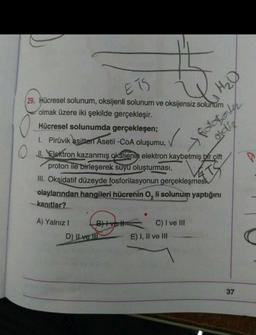 ETS
H₂O
29. Hücresel solunum, oksijenli solunum ve oksijensiz solunum
olmak üzere iki şekilde gerçekleşir.
Hücresel solunumda gerçekleşen;
I. Pirüvik asitten Asetil -CoA oluşumu,
II. Elektron kazanmış oksijenin elektron kaybetmiş bir çift
proton ile birleşerek suyu oluşturması,
III. Oksidatif düzeyde fosforilasyonun gerçekleşmesi,
olaylarından hangileri hücrenin O₂ li solunum yaptığını
kanıtlar?
A) Yalnız I B) I ve II C) I ve III
D) II ve III E) I, II ve III
37